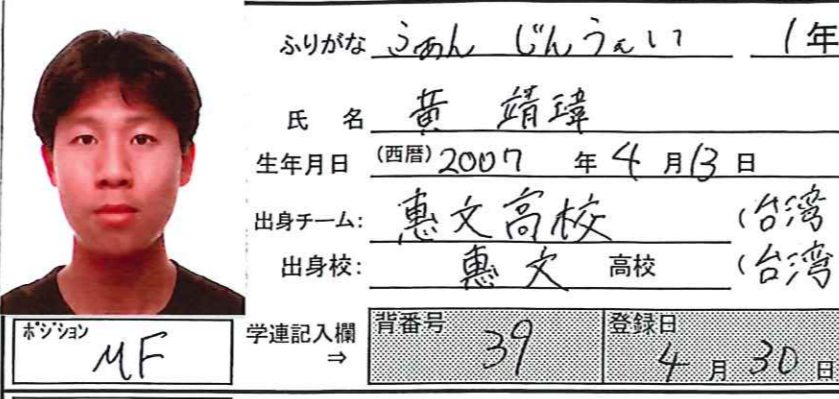 ふりがな ふぁん じんうぇい 1年
氏 名 黄 靖瑋
生年月日 (西暦) 2007 年 4 月 13 日
出身チーム: 惠文高校 (台湾
出身校: 惠文 高校 (台湾
ポジション MF
学連記入欄 ⇒ 背番号 39 登録日 4 月 30 日